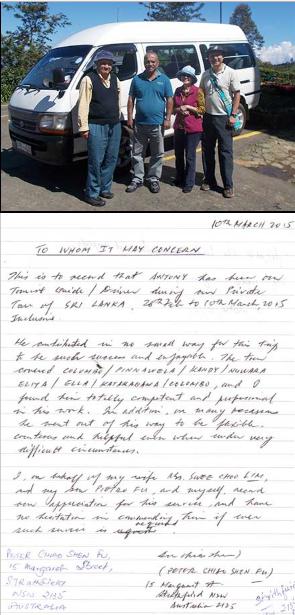 10TH MARCH 2015
TO WHOM IT MAY CONCERN
This is to record that ANTONY has been our
Tourist Guide / Driver during our Private
Tour of SRI LANKA, 26th Feb to 10th March, 2015
Inclusive.
He contributed in no small way for this trip
to be such success and enjoyable. The tour
covered COLOMBO / PINNAWELA / KANDY / NUWARA
ELIYA / ELLA / KATARAGAMA / COLOMBO, and I
found him totally competent and professional
in his work. In addition, on many occasions
he went out of his way to be flexible,
courteous and helpful even when under very
difficult circumstances.
I, on behalf of my wife Mrs. SWEE CHOO LIM,
and my son PIETRO FU, and myself, record
our appreciation for his service, and have
no hesitation in commending him if ever
such service is required
PETER CHIAO SHEN FU,
15 Margaret Street,
STRATHFIELD
NSW 2135
AUSTRALIA
(PETER CHIAO SHEN FU)
15 Margaret St
Strathfield NSW
Australia 2135